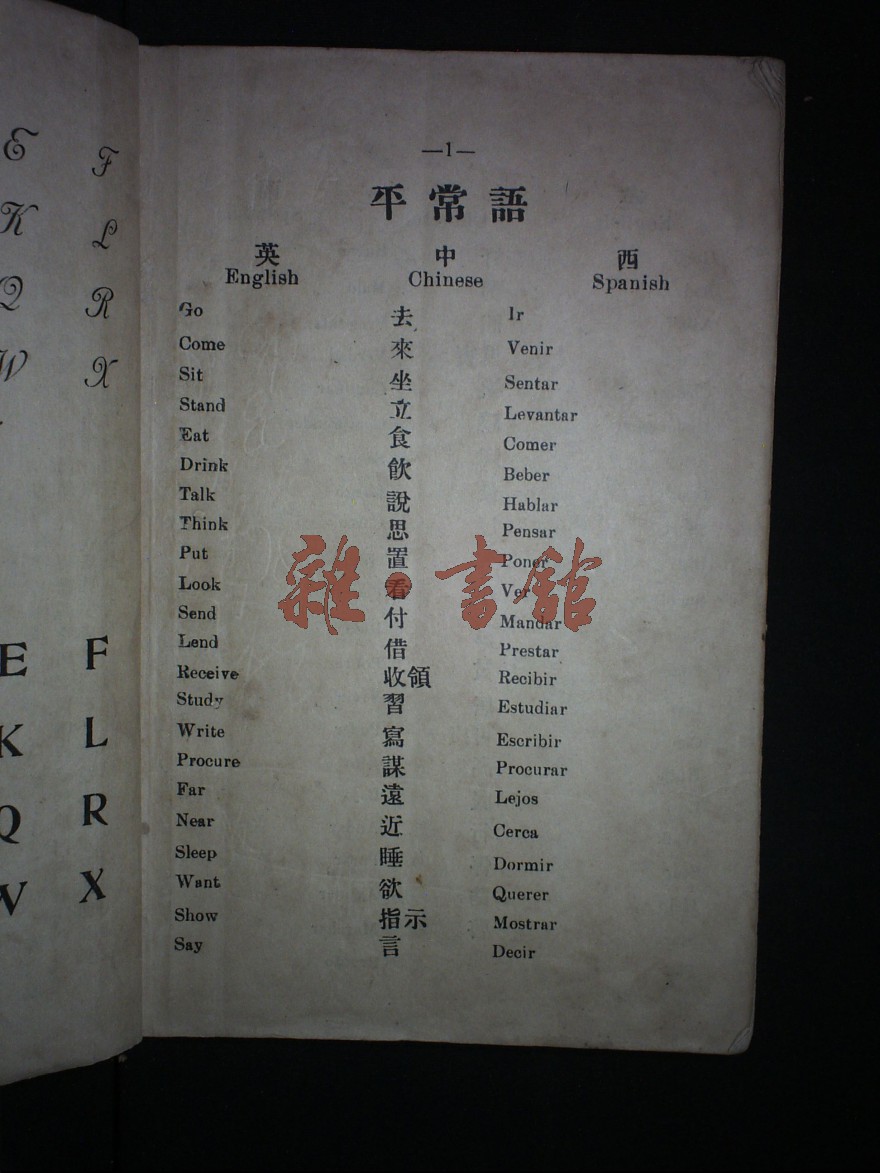 E F
K L
Q R
W X
E F
K L
Q R
W X
—1—
平常語
英 中 西
English Chinese Spanish
Go 去 Ir
Come 來 Venir
Sit 坐 Sentar
Stand 立 Levantar
Eat 食 Comer
Drink 飲 Beber
Talk 說 Hablar
Think 思 Pensar
Put 置 Poner
Look 看 Ver
Send 付 Mandar
Lend 借 Prestar
Receive 收領 Recibir
Study 習 Estudiar
Write 寫 Escribir
Procure 謀 Procurar
Far 遠 Lejos
Near 近 Cerca
Sleep 睡 Dormir
Want 欲 Querer
Show 指示 Mostrar
Say 言 Decir
雜·書館